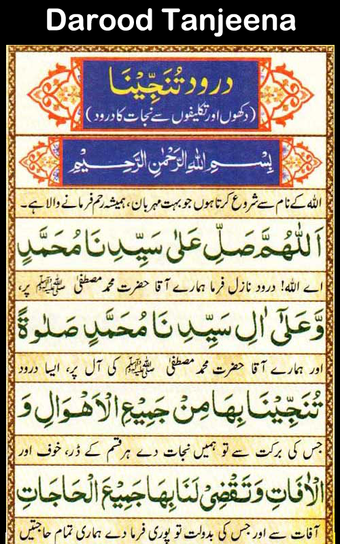 Darood Tanjeena
درود تُنَجِّیْنَا
(دکھوں اور تکلیفوں سے نجات کا درود)
بِسْمِ اللهِ الرَّحْمٰنِ الرَّحِیْمِ
اللہ کے نام سے شروع کرتا ہوں جو بہت مہربان، ہمیشہ رحم فرمانے والا ہے۔
اَللّٰهُمَّ صَلِّ عَلٰی سَیِّدِنَا مُحَمَّدٍ
اے اللہ! درود نازل فرما ہمارے آقا حضرت محمد مصطفیٰ ﷺ پر،
وَّعَلٰٓی اٰلِ سَیِّدِنَا مُحَمَّدٍ صَلٰوةً
اور ہمارے آقا حضرت محمد مصطفیٰ ﷺ کی آل پر، ایسا درود
تُنَجِّیْنَا بِهَا مِنْ جَمِیْعِ الْاَهْوَالِ وَ
جس کی برکت سے تو ہمیں نجات دے ہر قسم کے ڈر، خوف اور
الْاٰفَاتِ وَتَقْضِیْ لَنَا بِهَا جَمِیْعَ الْحَاجَاتِ
آفات سے اور جس کی بدولت تو پوری فرما دے ہماری تمام حاجتیں